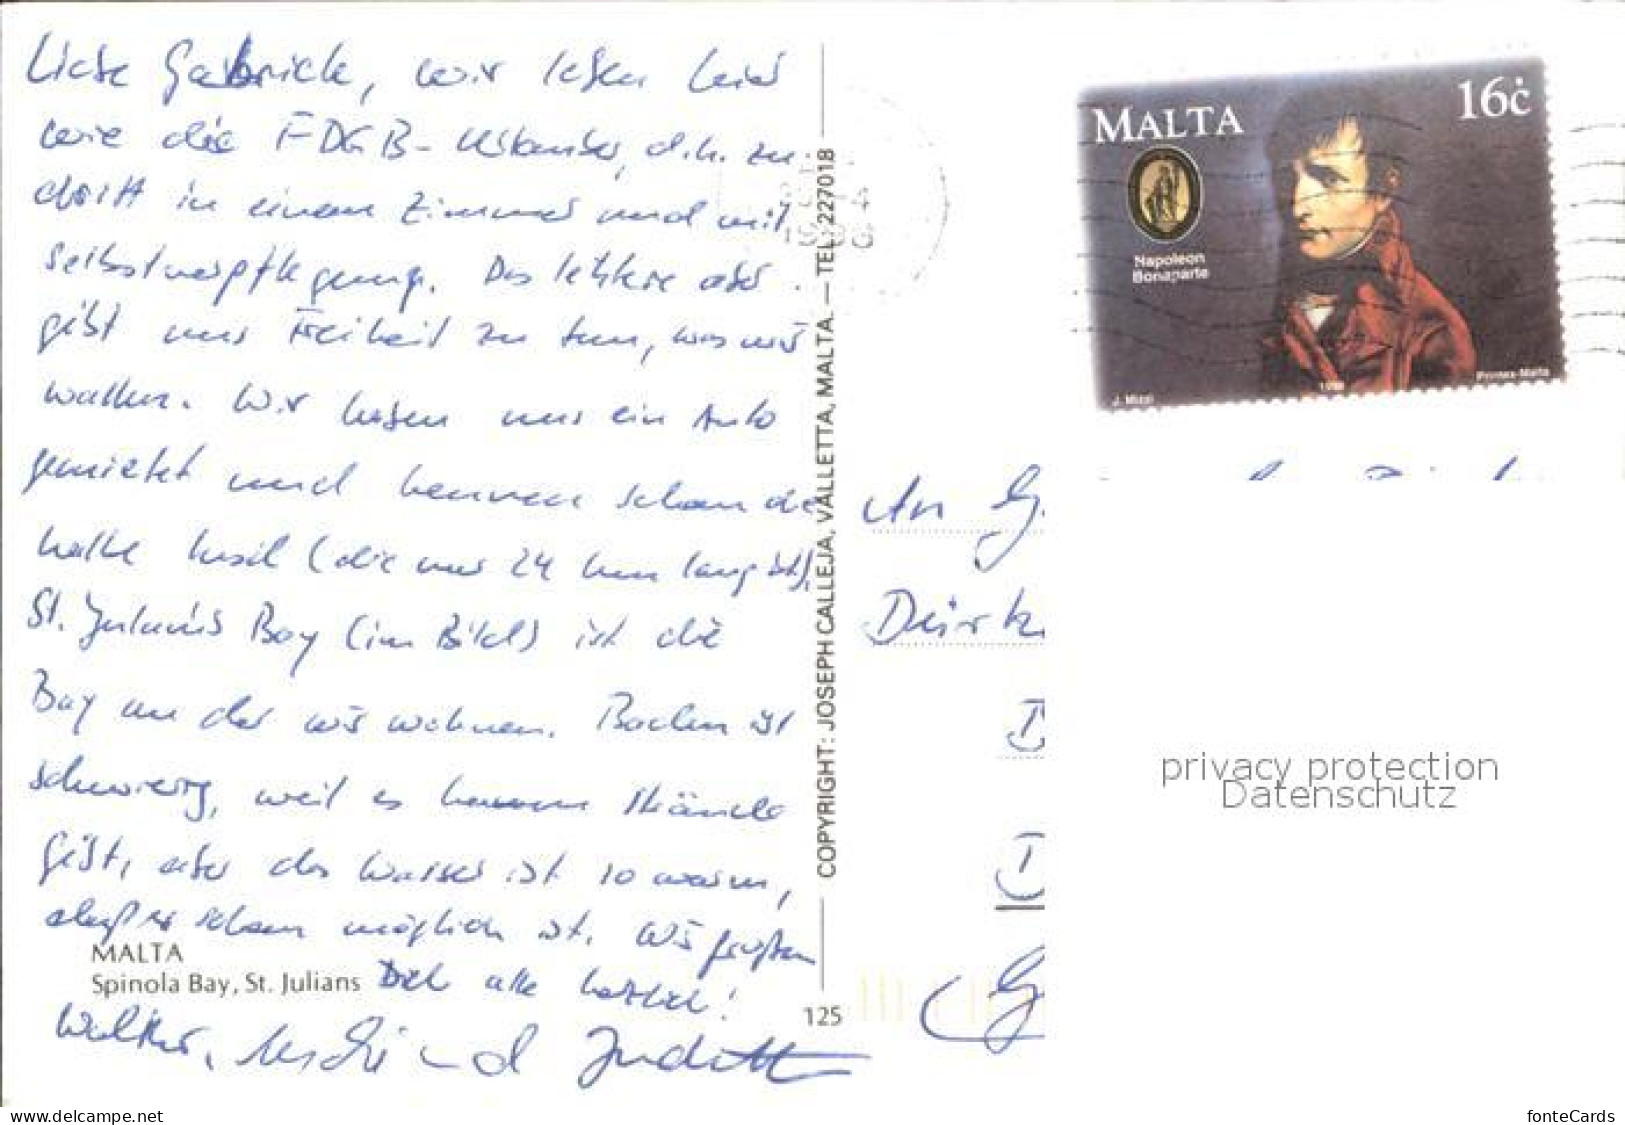 Liebe Gabriele, wir leben hier
wie die FDGB-Urlauber, d.h. zu
dritt in einem Zimmer und mit
Selbstverpflegung. Das letztere aber
gibt uns Freiheit zu tun, was wir
wollen. Wir haben uns ein Auto
gemietet und kennen schon die
halbe Insel (die nur 24 km lang ist).
St. Julian's Bay (im Bild) ist die
Bay an der wir wohnen. Baden ist
schwierig, weil es kaum Strände
gibt, aber das Wasser ist so warm,
daß es schon möglich ist. Wir grüßen
Dich alle herzlich!
Walter, und Judith
MALTA
Spinola Bay, St. Julians
125
COPYRIGHT: JOSEPH CALLEJA, VALLETTA, MALTA. — TEL. 227018
MALTA
16c
Napoleon
Bonaparte
J. Mizzi
1998
Printex-Malta
An G
Dürk
privacy protection
Datenschutz
www.delcampe.net
fonteCards